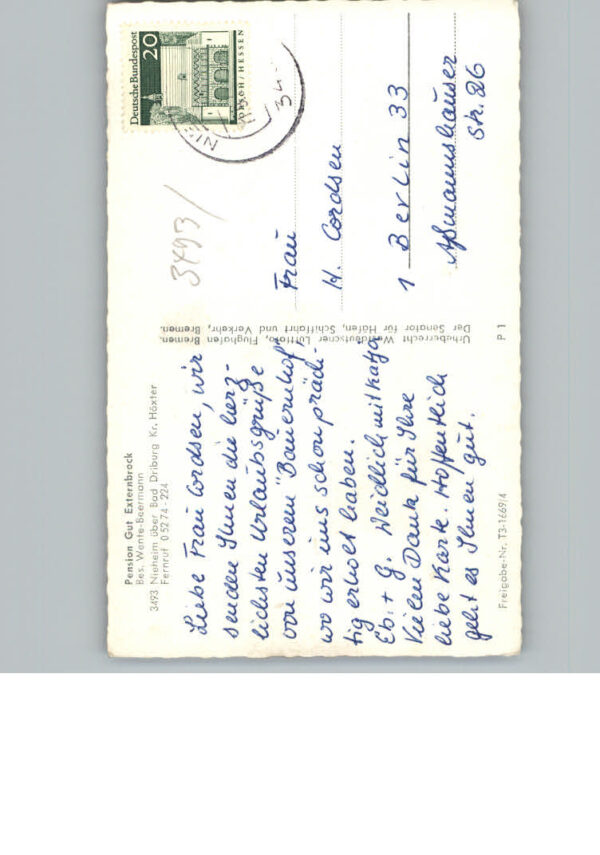 Pension Gut Externbrock
Bes. Wente-Beermann
3493 Nieheim über Bad Driburg Kr. Höxter
Fernruf 0 52 74 - 224
Liebe Frau Cordsen, wir
senden Ihnen die herz-
lichsten Urlaubsgrüße
von unserem "Bauernhof",
wo wir uns schon präch-
tig erholt haben.
Eb. + G. Weidlich mit Katja
Vielen Dank für Ihre
liebe Karte. Hoffentlich
geht es Ihnen gut.
Freigabe-Nr. T3-1669/4
Urheberrecht Westdeutscher Luftfoto, Flughafen Bremen.
Der Senator für Häfen, Schiffahrt und Verkehr, Bremen.
P 1
3493/
Deutsche Bundespost
20
LORSCH/HESSEN
NIE
34
Frau
H. Cordsen
1 Berlin 33
Aßmannshauser
Str. 26